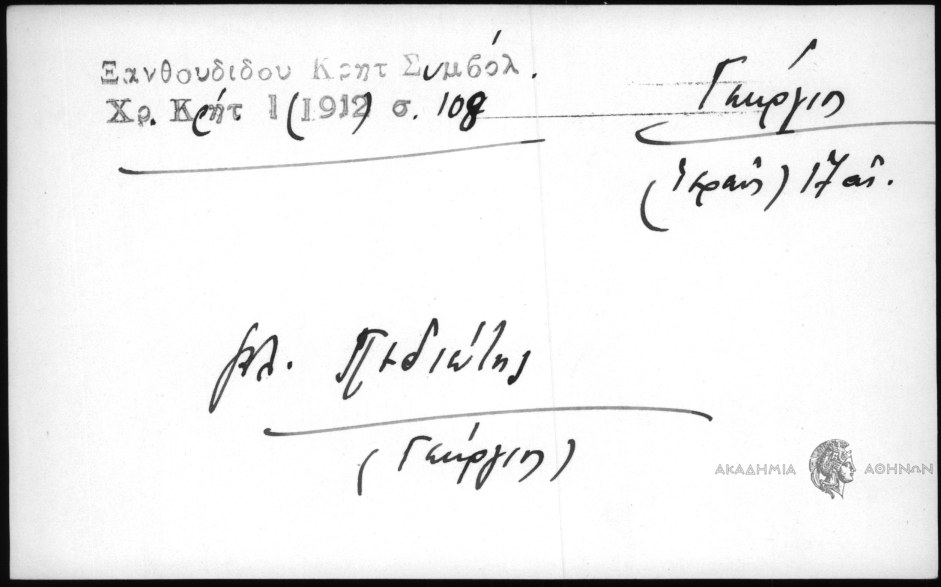 Ξανθουδιδου Κρητ Συμβόλ.
Χρ. Κρήτ 1 (1912) σ. 108
Γεώργιος
(Ἱεραπ.) 17 αἰ.
βλ. Πεδιώτης
(Γεώργιος)
ΑΚΑΔΗΜΙΑ ΑΘΗΝΩΝ